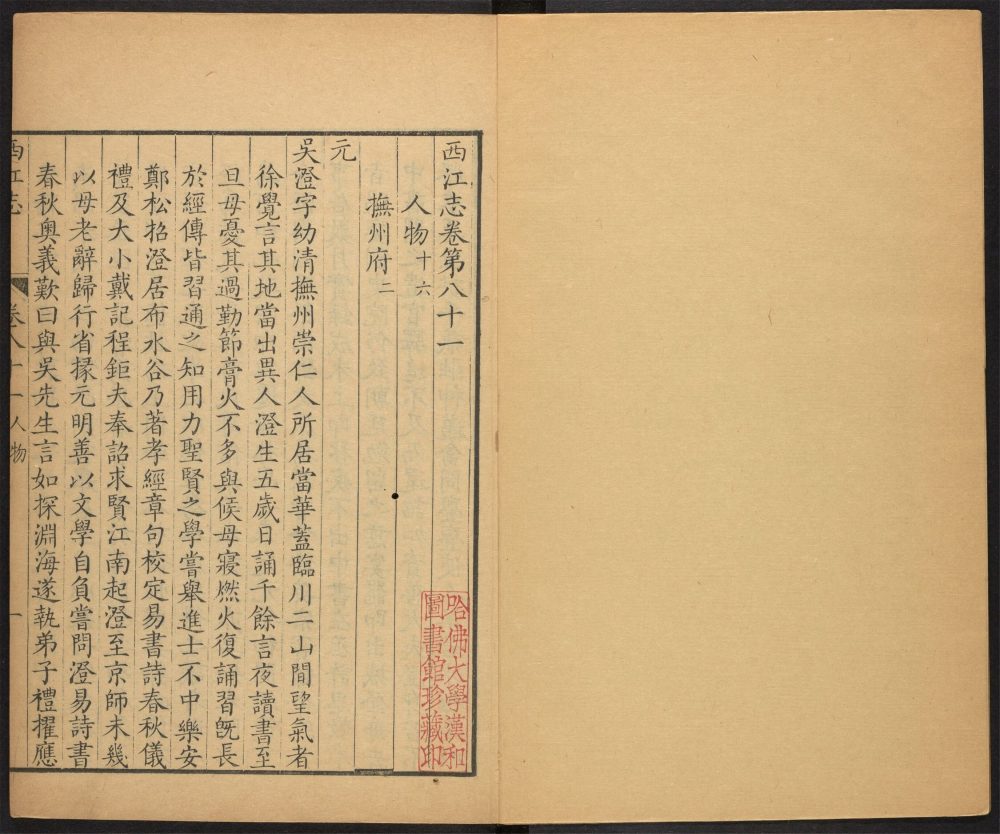 西江志卷第八十一
人物十六
撫州府二
元
吳澄字幼清撫州崇仁人所居當華蓋臨川二山間望氣者
徐覺言其地當出異人澄生五歲日誦千餘言夜讀書至
旦母憂其過勤節膏火不多與候母寢燃火復誦習旣長
於經傳皆習通之知用力聖賢之學嘗舉進士不中樂安
鄭松招澄居布水谷乃著孝經章句校定易書詩春秋儀
禮及大小戴記程鉅夫奉詔求賢江南起澄至京師未幾
以母老辭歸行省掾元明善以文學自負嘗問澄易詩書
春秋奧義歎曰與吳先生言如探淵海遂執弟子禮擢應
西江志 卷八十一 人物 一
哈佛大學漢和
圖書館珍藏印